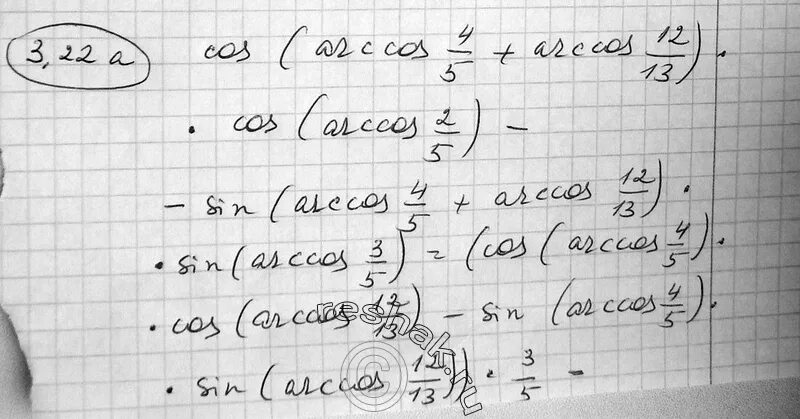 3,22 a cos (arccos 4/5 + arccos 12/13) ·
· cos (arccos 2/5) −
− sin (arccos 4/5 + arccos 12/13) ·
· sin (arccos 3/5) = (cos (arccos 4/5) ·
· cos (arccos 12/13) − sin (arccos 4/5) ·
· sin (arccos 12/13)) · 3/5 −
reshak.ru